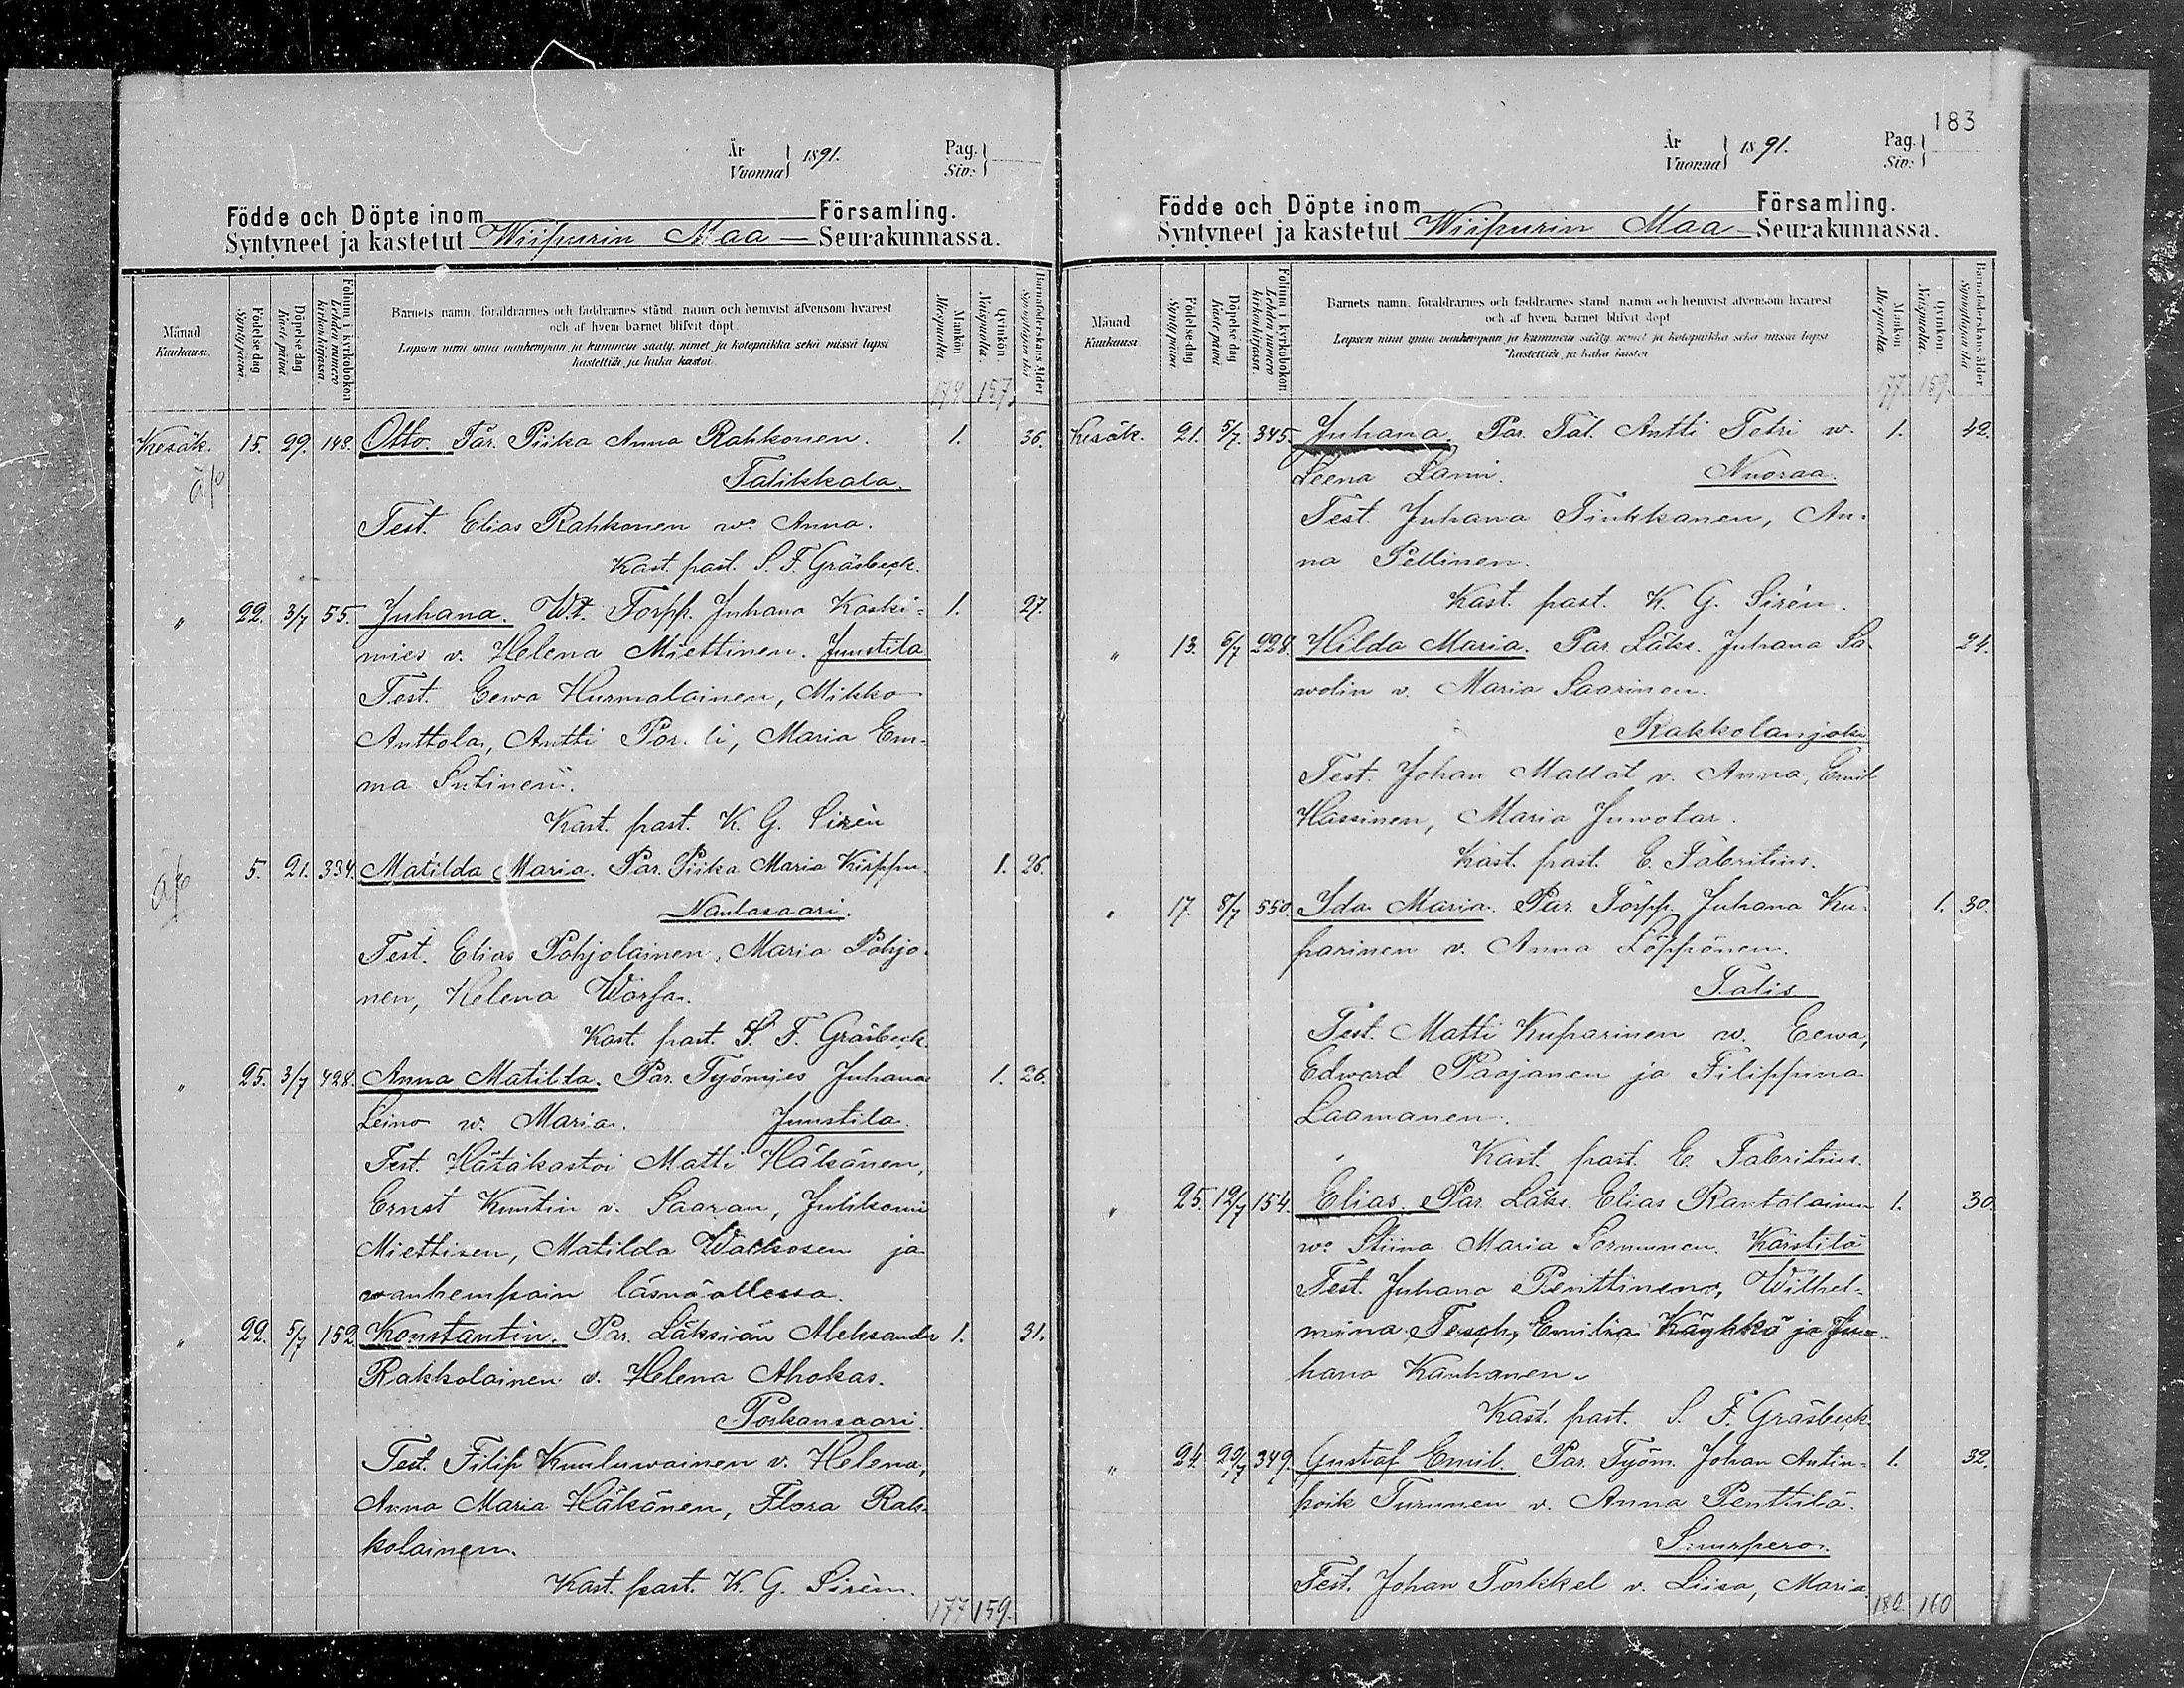 År
Vuonna } 1891.
Pag.
Siv: }
Födde och Döpte inom Församling.
Syntyneet ja kastetut Wiipurin Maa — Seurakunnassa.
Månad
Kuukausi.
Födelse dag
Synty päivä.
Döpelse dag
Kaste päivä
Folium i kyrkoboken
Lehden numero kirkonkirjassa.
Barnets namn, föräldrarnes och faddrarnes stånd namn och hemvist äfvensom hvarest
och af hvem barnet blifvit döpt.
Lapsen nimi ynnä vanhempain ja kummein sääty, nimet ja kotopaikka sekä missä lapsi
kastettiin, ja kuka kastoi.
Mankön
Miespuolta
Qvinkön
Naispuolta.
Barnaföderskans ålder
Synnyttäjän ikä
174. 157.
Kesäk. 15. 29. 148. Otto. Par. Piika Anna Rahkonen. 1. 36.
äp
Talikkala.
Test. Elias Rahkonen wo Anna.
Kast. past. S. F. Gräsbeck.
" 22. 3/7 55. Juhana. Wt. Torpp. Juhana Koski- 1. 27.
mies v. Helena Miettinen. Juustila
Test. Eewa Hurmalainen, Mikko
Anttola, Antti Por li, Maria Em-
ma Sutinen.
Kast. past. K. G. Sirèn
äp 5. 21. 334. Matilda Maria. Par. Piika Maria Kirppu. 1. 26.
Naulasaari.
Test. Elias Pohjolainen, Maria Pohjo-
nen, Helena Wörfa.
Kast. past. S. F. Gräsbeck.
" 25. 3/7 428. Anna Matilda. Par. Työmies Juhana 1. 26.
Leino w. Maria. Juustila.
Test. Hätäkastoi Matti Häkänen,
Ernst Kuntin v. Saaran, Julikoni
Miettisen, Matilda Watkosen ja
wanhempain läsnäollessa.
" 22. 5/7 152. Konstantin. Par. Läksiän Aleksander 1. 31.
Rakkolainen v. Helena Ahokas.
Porkansaari.
Test. Filip Kuuluwainen v. Helena,
Anna Maria Häkänen, Flora Rak-
kolainen.
Kast. past. K. G. Sirèn.
177 159.
183
År
Vuonna } 1891.
Pag.
Siv: }
Födde och Döpte inom Församling.
Syntyneet ja kastetut Wiipurin Maa — Seurakunnassa.
Månad
Kuukausi
Födelse dag
Synty päivä
Döpelse dag
Kaste päivä
Folium i kyrkoboken
Lehden numero kirkonkirjassa.
Barnets namn, föräldrarnes och faddrarnes stånd namn och hemvist äfvensom hvarest
och af hvem barnet blifvit döpt
Lapsen nimi ynnä vanhempain ja kummein sääty nimet ja kotopaikka sekä missä lapsi
kastettiin, ja kuka kastoi
Mankön
Miespuolta.
Qvinkön
Naispuolta.
Barnaföderskans ålder
Synnyttäjän ikä
177. 159.
Kesäk. 21. 5/7 345. Juhana. Par. Tal. Antti Tetri w. 1. 42.
Leena Lami. Nuoraa.
Test. Juhana Tiukkanen, An-
na Pellinen.
Kast. past. K. G. Sirén.
" 13. 6/7 228. Hilda Maria. Par. Läks. Juhana Sa- 24.
wolin v. Maria Saarinen.
Rakkolanjoki
Test. Johan Mattot v. Anna, Emil
Hassinen, Maria Juwotar.
Kast. past. E. Fabritius.
" 17. 8/7 550. Ida Maria. Par. Torpp. Juhana Ku- 1. 30.
parinen v. Anna Löppönen.
Talis
Test. Matti Kuparinen w. Eewa,
Edward Paajanen ja Filippina
Laamanen.
Kast. past. E. Fabritius.
" 25. 12/7 154. Elias. Par. Läks. Elias Rantalainen 1. 30.
wo Stiina Maria Sormunen. Kärstilä
Test. Juhana Penttinen, Wilhel-
mina Tesch, Emilia Käyhkö ja Ju-
hana Kauhanen.
Kast. past. S. F. Gräsbeck.
" 24. 22/7 349. Gustaf Emil. Par. Työm. Johan Antin- 1. 32.
poik Turunen v. Anna Penttilä.
Suurpero.
Test. Johan Torkkel v. Liisa, Maria
180. 160